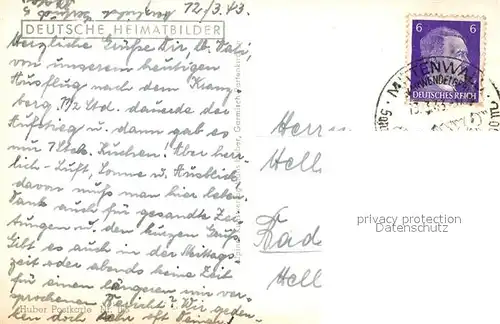 12/3.43.
DEUTSCHE HEIMATBILDER
Herzliche Grüße Dir, lb.
von unserem heutigen
Ausflug nach dem Kranz
berg 1 1/2 Std. dauerte der
Aufstieg u. dann gab es
nur 1 Stck. Kuchen! Aber herr
lich - Luft, Sonne u. Ausblick,
davon muß man hier leben.
Dank auch für gesandte Zei-
tungen u. den kurzen Gruß
Gilt es auch in der Mittags
zeit oder abends keine Zeit
für einen längeren mir ver-
sprochenen Bericht? Wir geden-
ken doch sehr oft Deiner
Huber Postkarte
6 6
DEUTSCHES REICH
MITTENWALD
Herrn
Hell
Rad
Hell
privacy protection
Datenschutz